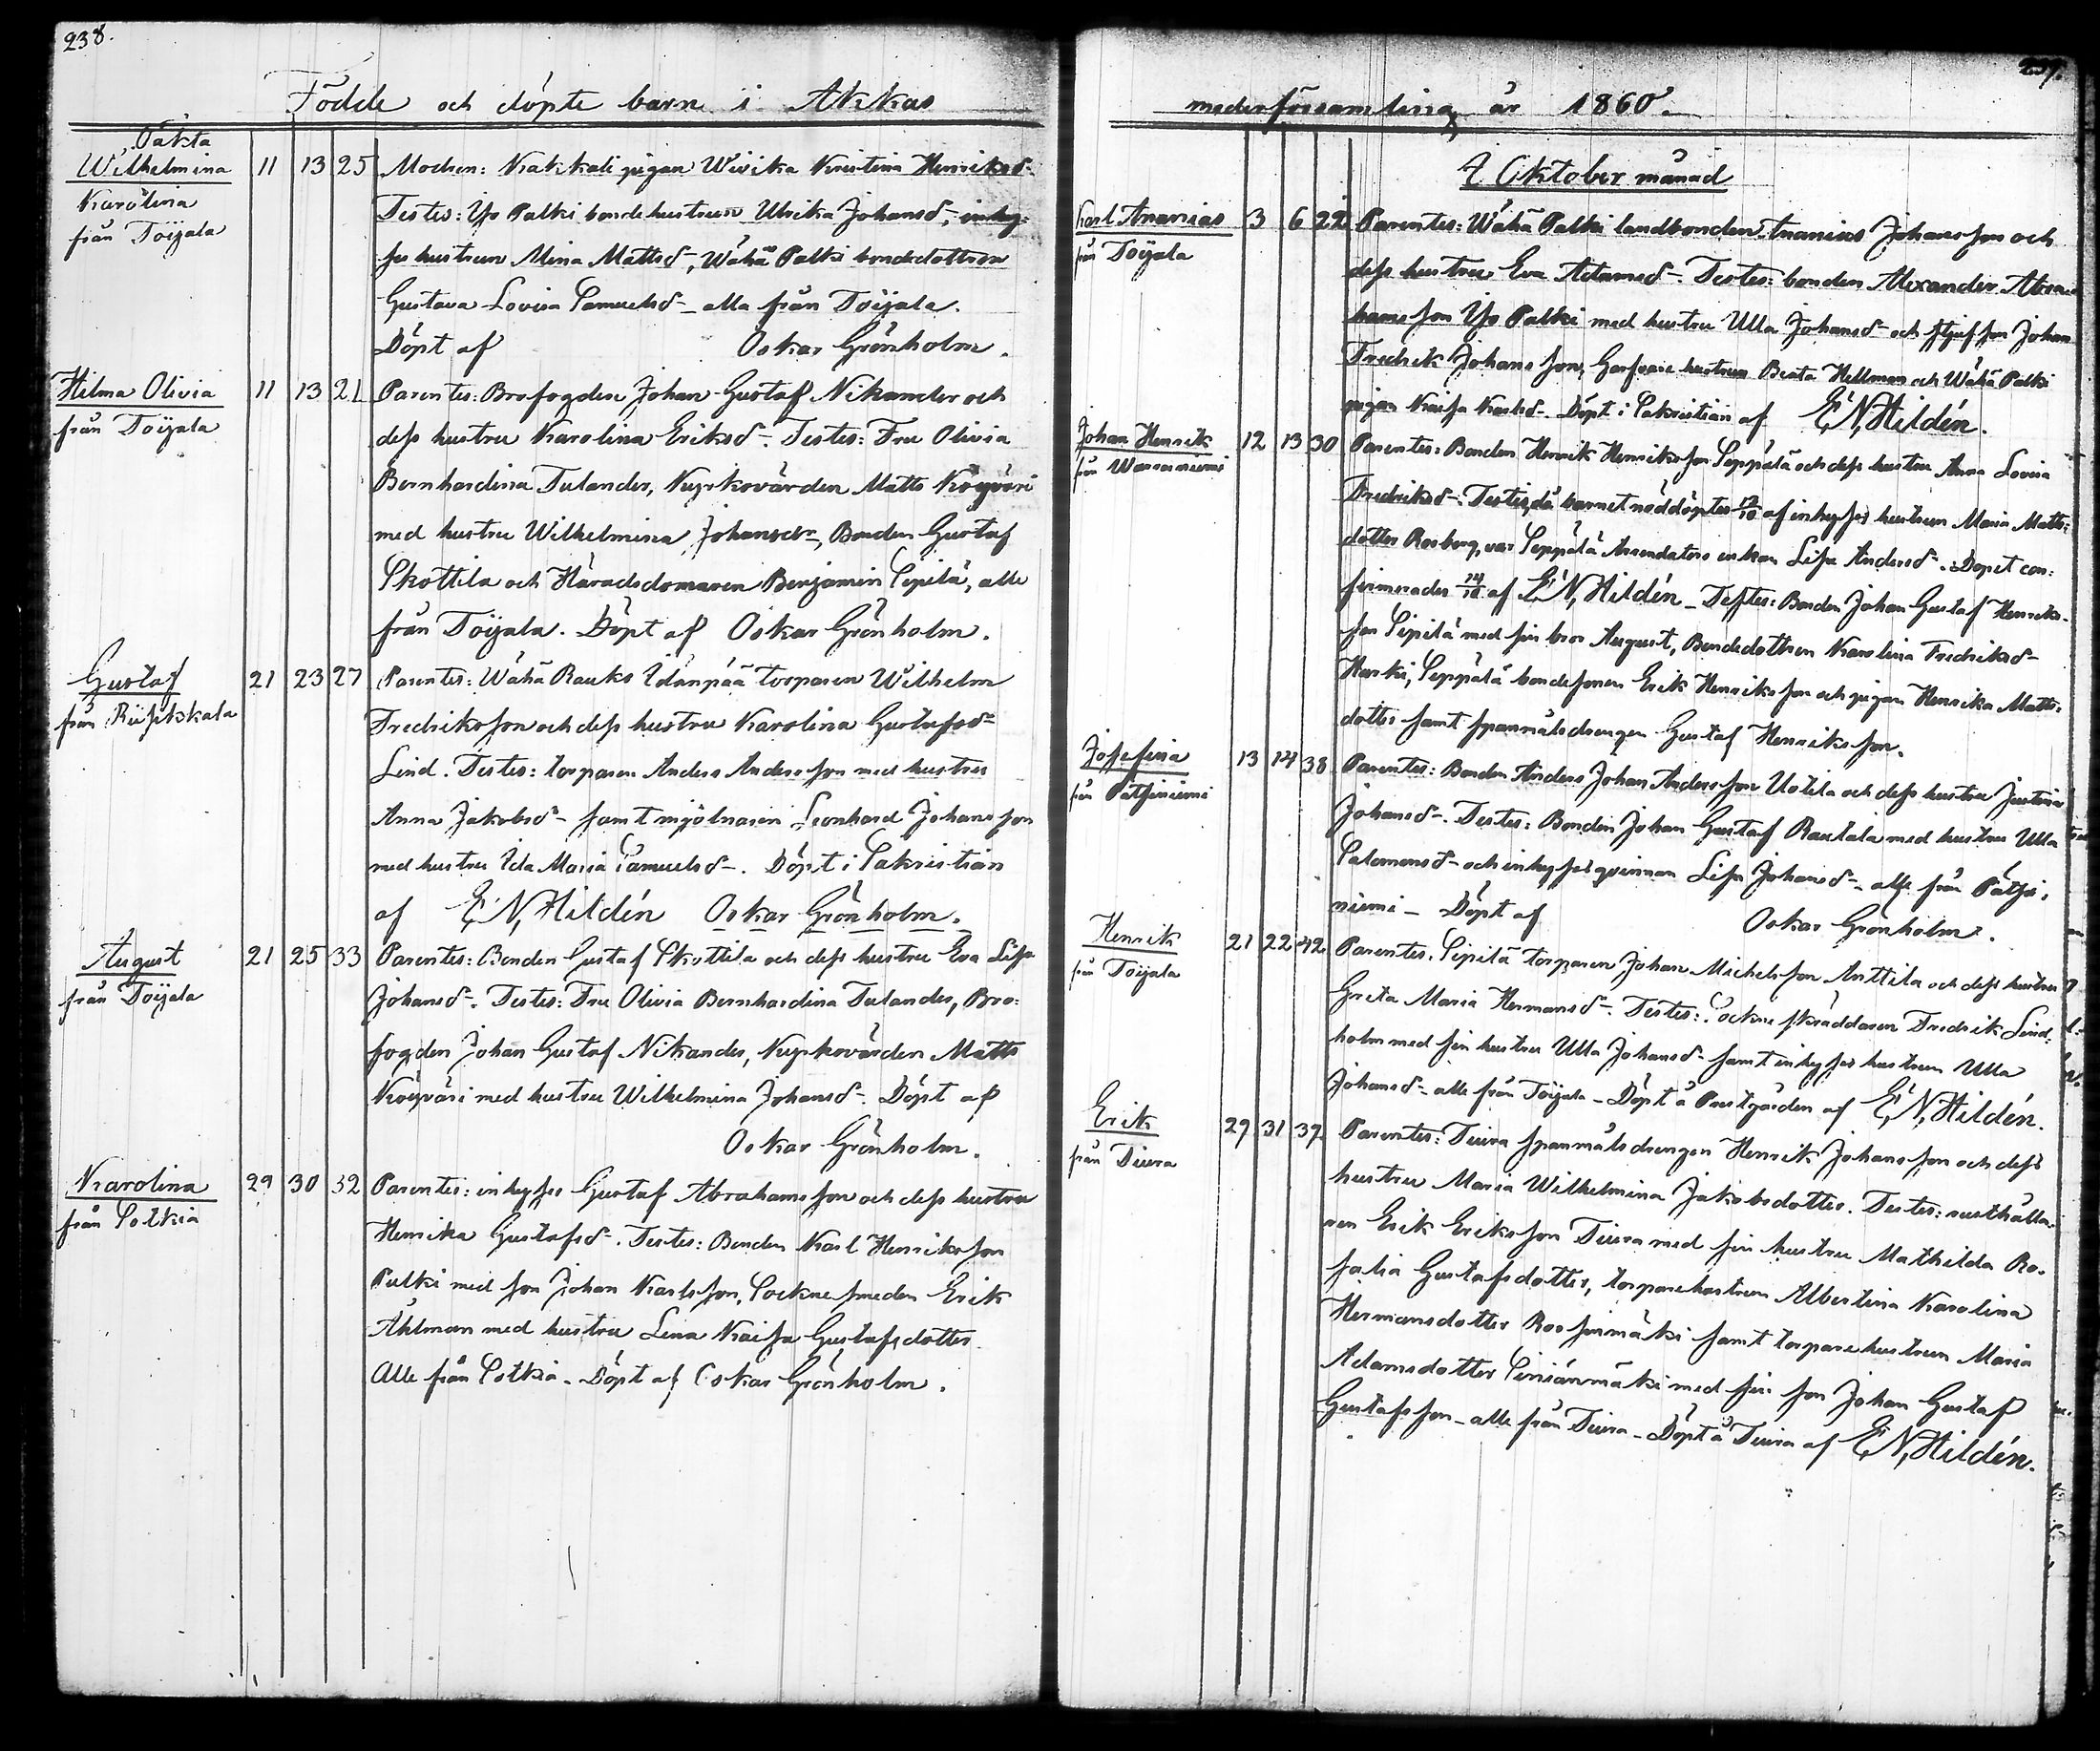 238.
Födde och döpte barn i Akkas
Oäkta
Wilhelmina 11 13 25 Modren: Kakkali pigan Wivika Kristina Henriksd-
Karolina
Testes: Yli Palki bondehustrun Ulrika Johansd-, inhy-
från Toijala
ses hustrun Mina Mattsd-, Wähä Palki bondedottren
Gustava Lovisa Samuelsd- alla från Toijala.
Döpt af Oskar Grönholm.
Hilma Olivia 11 13 21 Parentes: Brofogden Johan Gustaf Nikander och
från Toijala
dess hustru Karolina Eriksd-. Testes: Fru Olivia
Bernhardina Tulander, Kyrkovärden Matts Köyväri
med hustru Wilhelmina Johansdr-, Bonden Gustaf
Skottila och Häradsdomaren Benjamin Sipilä, alle
från Toijala. Döpt af Oskar Grönholm.
Gustaf 21 23 27 Parentes: Wähä Rauko Idänpää torparen Wilhelm
från
Fredriksson och dess hustru Karolina Gustafsd-
Lind. Testes: torparen Anders Andersson med hustru
Anna Jakobsd- samt mjölnaren Leonhard Johansson
med hustru Ida Maria Samuelsd-. Döpt i Sakristian
af E, N, Hildén Oskar Grönholm.
August 21 25 33 Parentes: Bonden Gustaf Skottila och dess hustru Eva Lisa
från Toijala
Johansd-. Testes: Fru Olivia Bernhardina Tulander, Bro-
fogden Johan Gustaf Nikander, Kyrkovärden Matts
Köyväri med hustru Wilhelmina Johansd-. Döpt af
Oskar Grönholm.
Karolina 29 30 32 Parentes: inhyses Gustaf Abrahamsson och dess hustru
från Sotkia
Henrika Gustafsd-. Testes: Bonden Karl Henriksson
Pulki med son Johan Karlsson, Sockne smeden Erik
Åhlman med hustru Lena Kaisa Gustafsdotter
Alle från Sotkia. Döpt af Oskar Grönholm.
239.
moderförsamling år 1860.
I Oktober månad
Karl Ananias 3 6 22 Parentes: Wähä Palki landbonden Ananias Johansson och
från Toijala
dess hustru Eva Adamsd-. Testes: bonden Alexander Abra-
hamsson Yli Palki med hustru Ulla Johansd- och Johan
Fredrik Johansson, Garfvare hustrun Beata Hellman och Wähä Palki
pigan Kaisa Karlsd-. Döpt i Sakristian af E, N, Hildén.
Johan Henrik 12 13 30 Parentes: Bonden Henrik Henriksson Seppälä och dess hustru Anna Lovisa
från
Fredriksd-. Testis, då barnet nöddöptes 12/10 af inhyses hustrun Maria Matts-
dotter Rosberg, var Seppälä Arrendators enkan Lisa Andersd-. Dopet con-
firmerades 14/10 af E, N, Hildén - Testes: Bonden Johan Gustaf Henriks-
son Sipilä med sin bror August, Bondedottren Karolina Fredriksd-
Heikki, Seppälä bondesonen Erik Henriksson och pigan Henrika Matts-
dotter samt spannmålsdrengen Gustaf Henriksson.
Josefina 13 14 38 Parentes: Bonden Anders Johan Andersson Uotila och dess hustru Justina
från Pätsiniemi
Johansd-. Testes: Bonden Johan Gustaf Rautala med hustru Ulla
Salomonsd- och inhysesqvinnan Lisa Johansd- alla från Pätsi-
niemi - Döpt af Oskar Grönholm.
Henrik 21 22 42 Parentes. Sipilä torparen Johan Michelsson Anttila och dess hustru
från Toijala
Greta Maria Hermansd-. Testes: Sockne skräddaren Fredrik Lind-
holm med sin hustru Ulla Johansd- samt inhyses hustrun Ulla
Johansd- alle från Toijala - Döpt å Prestgården af E, N, Hildén.
Erik 29 31 39 Parentes: Tiura spannmålsdrengen Henrik Johansson och dess
från Tiura
hustru Maria Wilhelmina Jakobsdotter. Testes: rusthålla-
ren Erik Eriksson Tiura med sin hustru Mathilda Ro-
salia Gustafsdotter, torparehustrun Albertina Karolina
Hermansdotter Roosinmäki samt torparehustrun Maria
Adamsdotter med sin son Johan Gustaf
Gustafsson - alle från Tiura - Döpt å Tiura af E, N, Hildén.